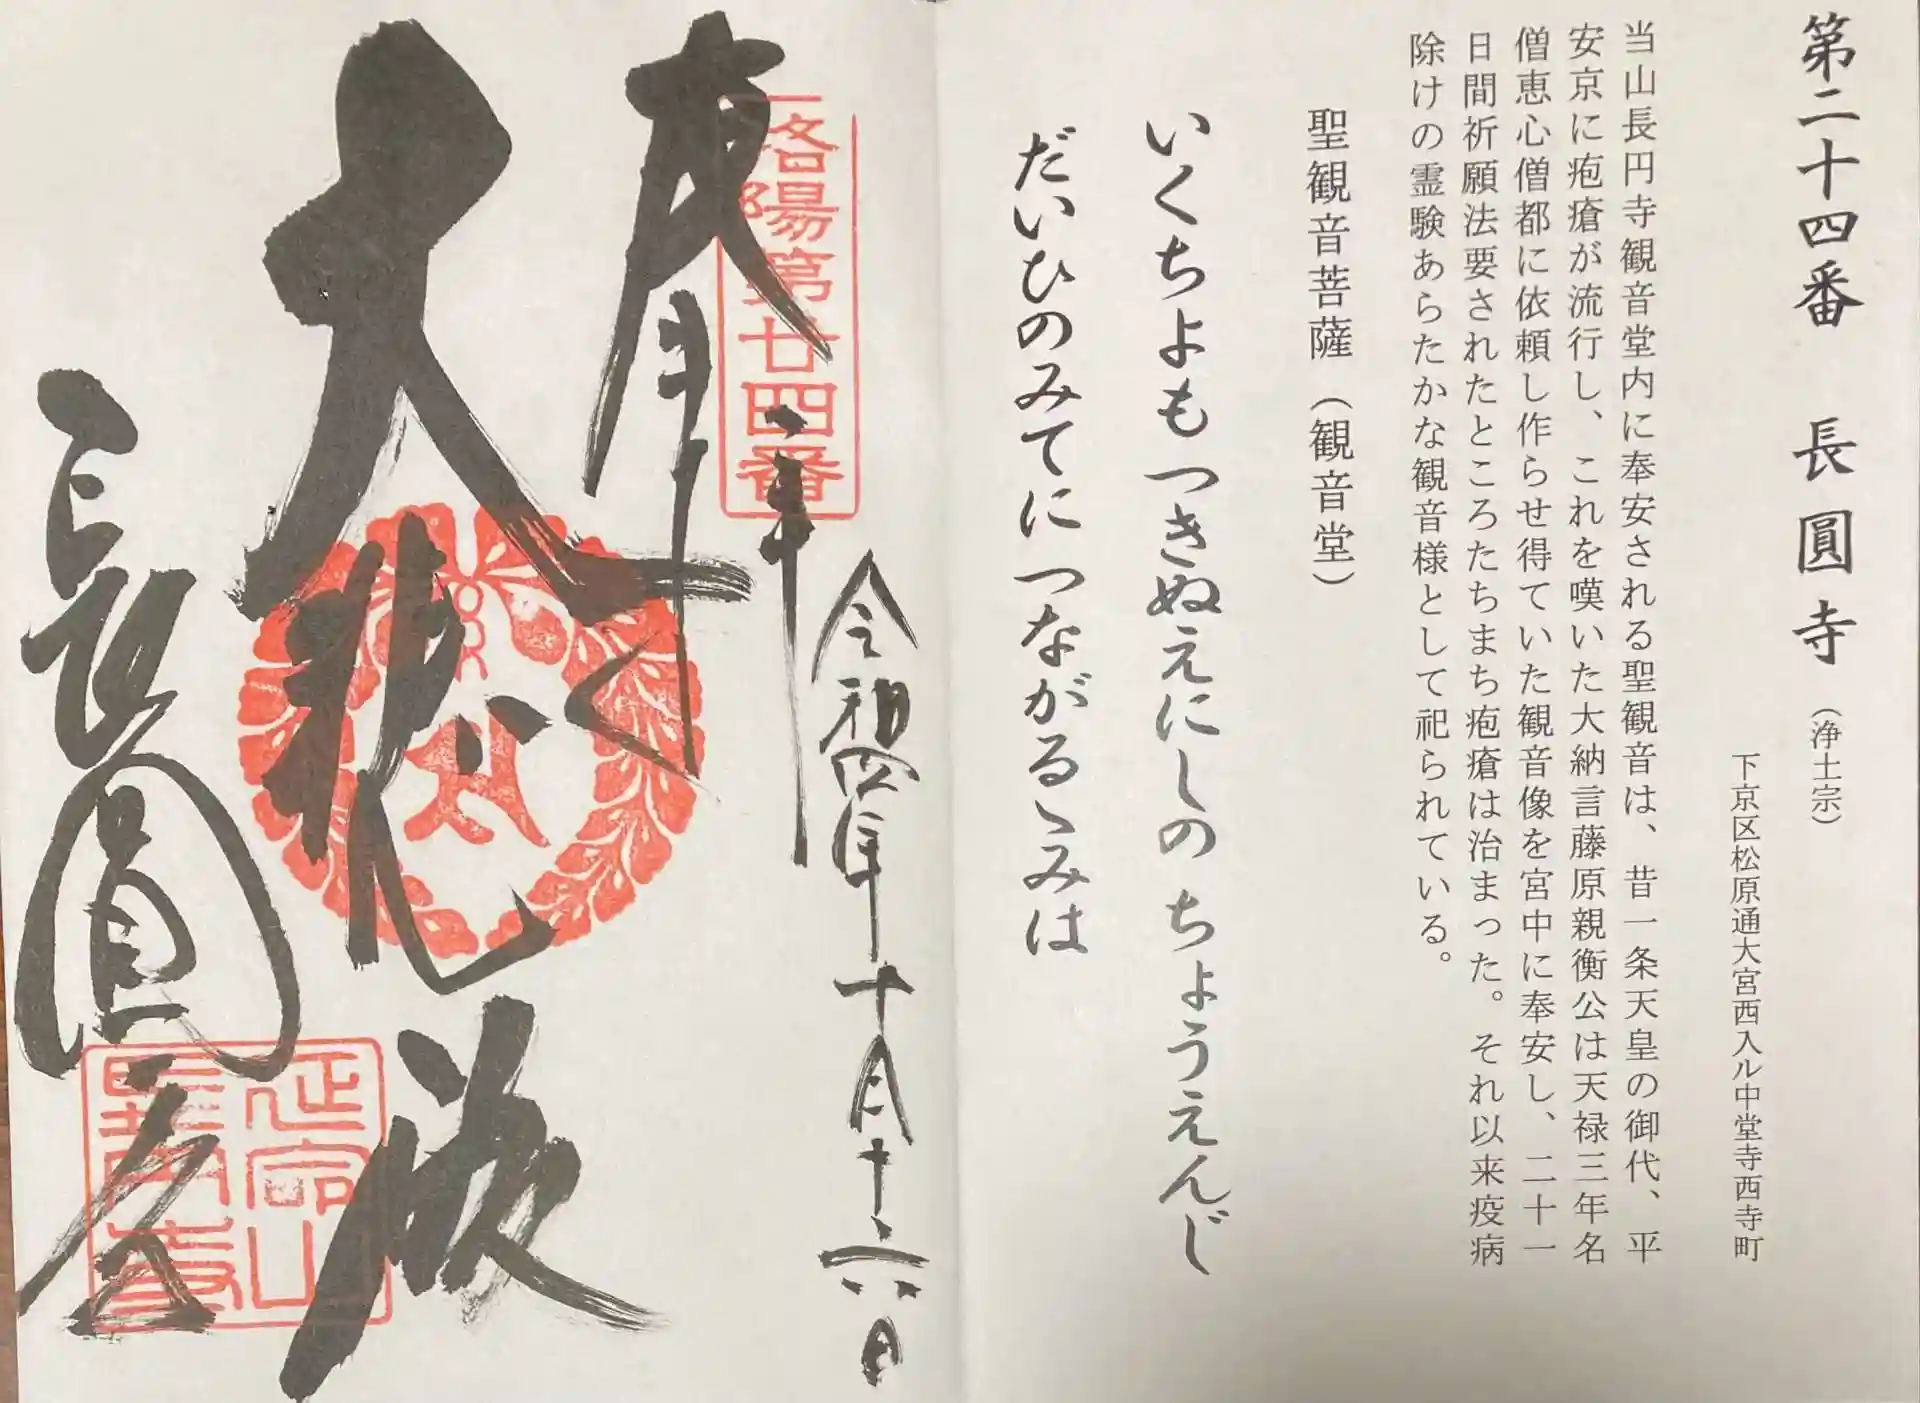 第二十四番　長圓寺（浄土宗）
下京区松原通大宮西入ル中堂寺西寺町
当山長円寺観音堂内に奉安される聖観音は、昔一条天皇の御代、平
安京に疱瘡が流行し、これを嘆いた大納言藤原親衡公は天禄三年名
僧恵心僧都に依頼し作らせ得ていた観音像を宮中に奉安し、二十一
日間祈願法要されたところたちまち疱瘡は治まった。それ以来疫病
除けの霊験あらたかな観音様として祀られている。
聖観音菩薩（観音堂）
いくちよもつきぬえにしのちょうえんじ
だいひのみてにつながるゝみは
令和四年十月十六日
奉拝
洛陽第廿四番
大悲殿
長圓寺
延命山